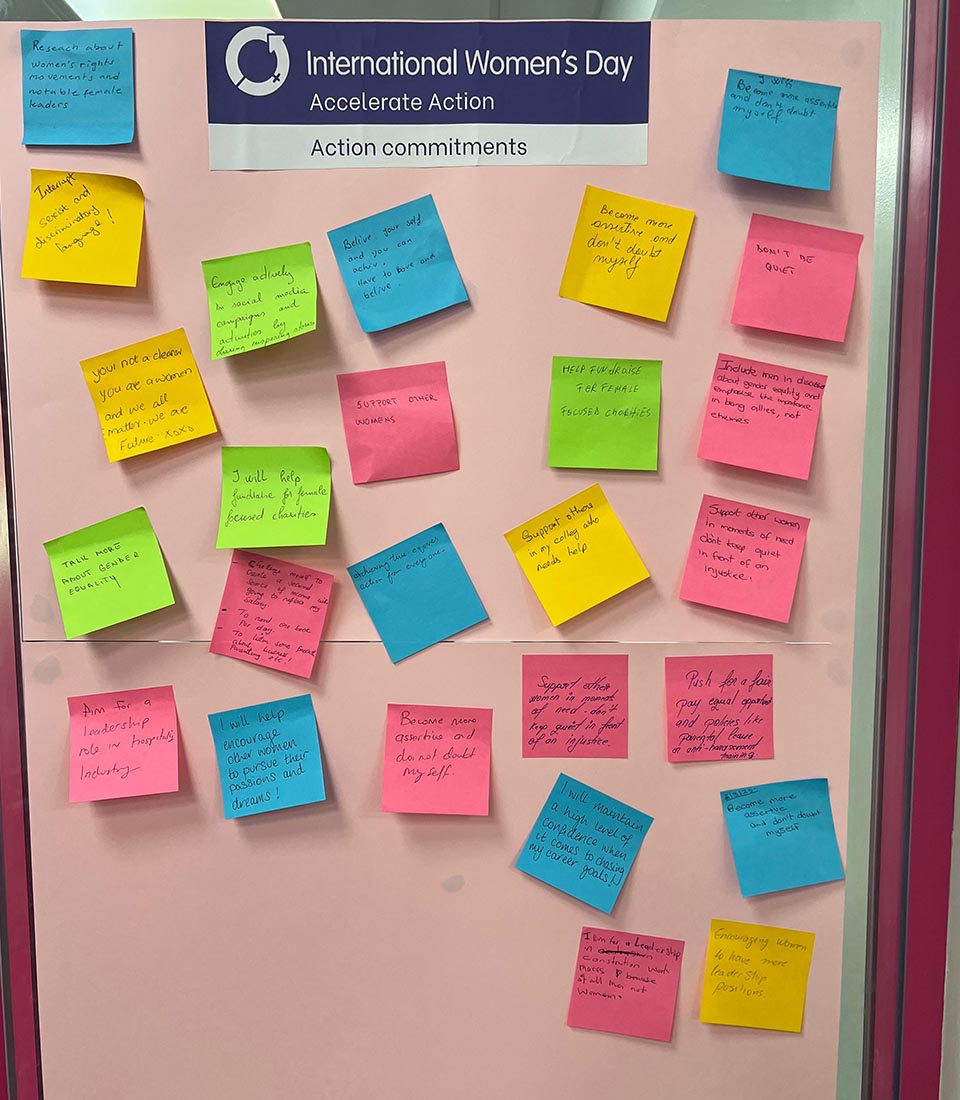 International Women's Day
Accelerate Action
Action commitments
Reseach about
women's rights
movements and
notable female
leaders
I will
Become more assertive
and don't doubt
myself.
Interrupt
sexist and
discriminatory
language!
Engage actively
in social media
campaigns and
activities by
sharing inspiring stories
Belive your self
and you can
achiv.
Have to love and
belive.
Become more
assertive and
don't doubt
myself
DON'T BE
QUIET
your not a cleaner
you are a women
and we all
matter. we are
Future - xoxo
SUPPORT OTHER
WOMENS
HELP FUNDRAISE
FOR FEMALE
FOCUSED CHARITIES
Include men in
about gender equility and
emphasise the importance
in being allies, not
enemies
I will help
fundraise for female
focused charities
TALK MORE
ABOUT GENDER
EQUALITY
myself to
Create a second
source of income
going to replace my
salary.
- To read one book
Per day.
- To
about business!
Parenting etc.
Achieving
action for everyone.
Support others
in my colleg who
needs help
Support other women
in moments of need
don't keep quiet
in front of an
injustice.
Aim for a
Leadership
role in Hospitality
Industry
I will help
encourage
other women
to pursue their
passions and
dreams!
Become more
assertive and
do not doubt
myself.
Support other
women in moments
of need - don't
keep quiet in front
of an injustice.
Push for a fair
pay equal
and policies like
Parental leave
or anti-harassement
training
I will maintain
a high level of
confidence when
it comes to chasing
my career goals!
Become more
assertive
and don't doubt
myself
I Aim for a Leadership
in
constrution work
places because
it all men not
women.
Encouraging women
to have more
leadership
positions.